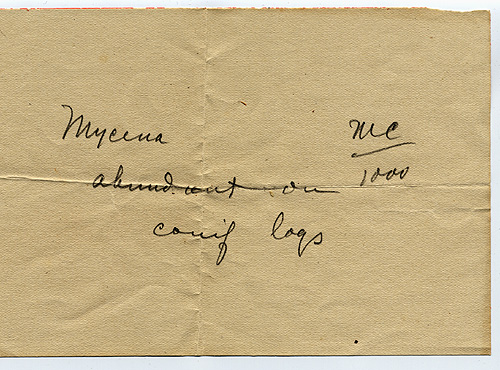 Mycena MC
1000
abundant on
conif logs